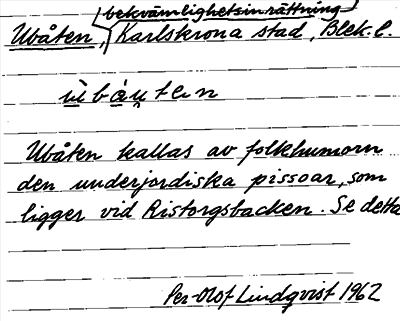 bekvämlighetsinrättning
Ubåten, Karlskrona stad, Blek. l.
Ubåten kallas av folkhumorn
den underjordiska pissoar, som
ligger vid Ristorgsbacken. Se detta
Per-Olof Lindqvist 1962